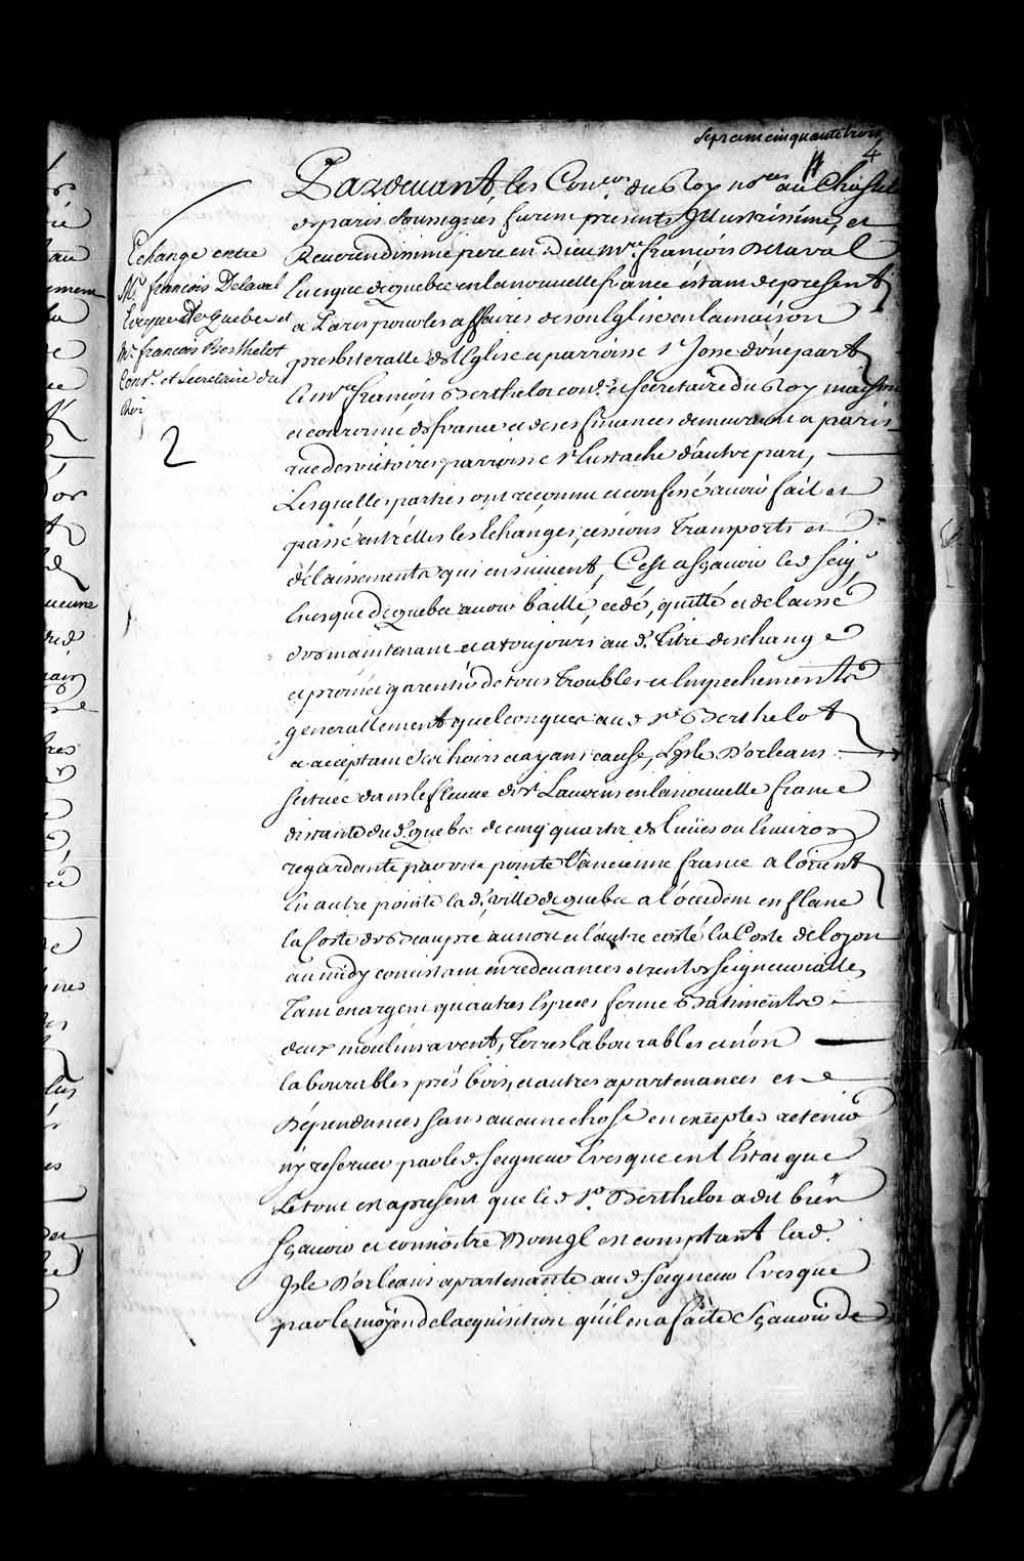 Sept cent cinquante trois
4
Echange entre
Mr. francois Delaval
Evesque De Quebec et
Mr. francois Berthelot
Conr. et Secretaire du
Roi
2
Pardevant les Coners. du Roy nores. au Chastelet
de paris soussignes furent presents Illustrissime et
Reverendissime pere en Dieu mre. françois De Laval
Evesque de quebec en la nouvelle france estant de present
a Paris pour les affaires de son Eglise en la maison
presbiteralle de l'Eglise et parroisse St. Josse d'une part
Et mre. françois Berthelot conr. et secretaire du Roy maison
et couronne de france et de ses finances demeurant a paris
rue des victoires parroisse St. Eustache d'autre part,
Lesquelles parties ont reconnu et confessé avoir fait et
passé entr'elles les Echanges, cessions Transports et
délaissements qui ensuivent, C'est a sçavoir led. Seigr.
Evesque de quebec avoir baillé, cedé, quitté et delaissé
des maintenant et a toujours aud. Titre deschange
et promet garentir de tous Troubles et Empechements
generallement quelconques aud. Sr. Berthelot
et acceptant ses hoirs et ayans cause, L'isle D'orleans
scituée dans le fleuve de St. Laurens en la nouvelle france
distante dud. quebec de cinq quarts de lieües ou Environ
regardante par une pointe l'ancienne france a l'orient
En autre pointe la d. ville de quebec a l'occident en flanc
la Coste de Beaupré au nort et l'autre costé la Coste de lozon
au midy consistant en redevances et rentes seigneurialles
Tant en argent qu'autres Especes ferme Batiments
deux moulins a vent, Terres labourables et nón
labourables prés bois, et autres apartenances et
Dépendances sans aucune chose en excepter retenir
ny reserver par led. Seigneur Evesque en l'Estat que
Le tout est apresent que led. Sr. Berthelot a dit bien
Sçavoir et connoistre en comptant lad.
Isle D'orleans apartenante aud. Seigneur Evesque
par le moyen de lacquisition qu'il en a faite Sçavoir de